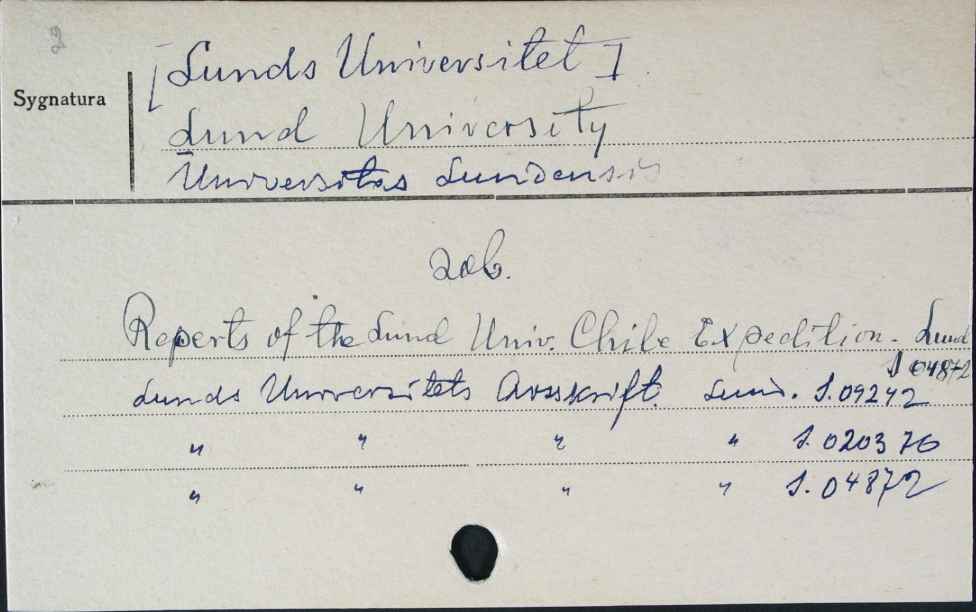 2
[Lunds Universitet]
Sygnatura
Lund University
Universitas Lundensis
zob.
Reports of the Lund Univ. Chile Expedition. Lund
S 04872
Lunds Universitets Arsskrift. Lund. S. 09242
" " " " S. 020376
" " " " S. 04872